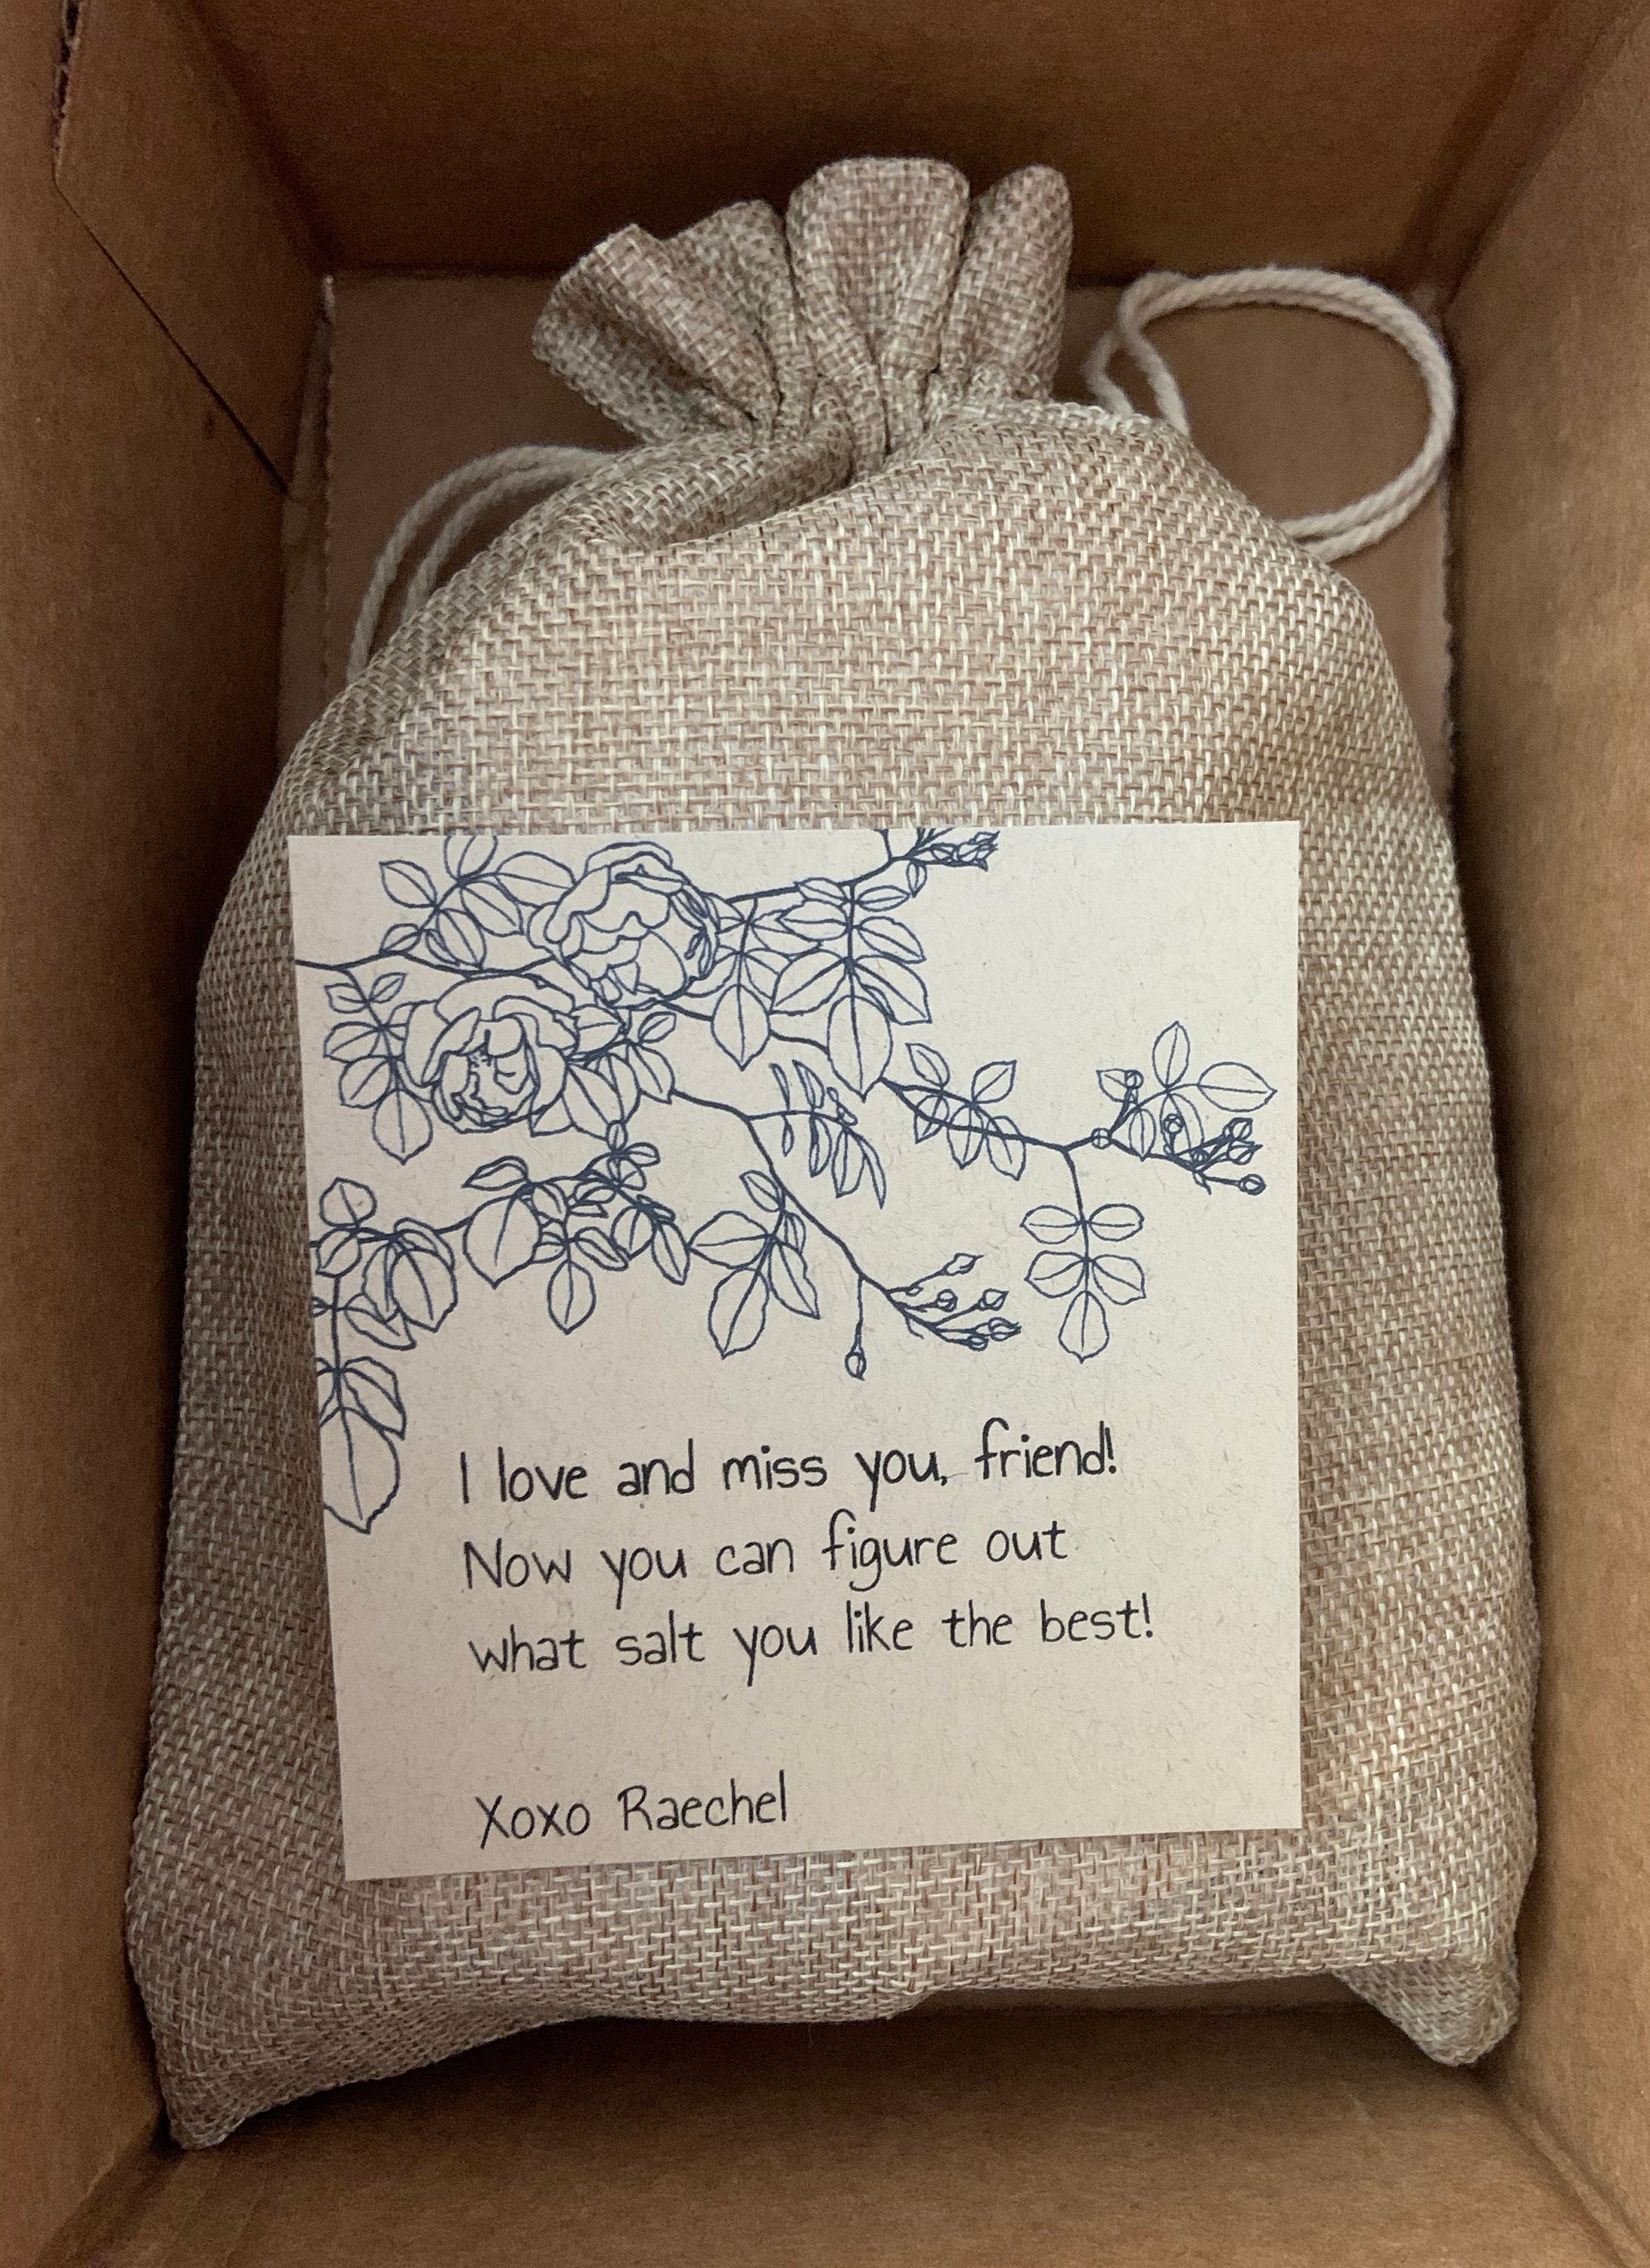 I love and miss you, friend!
Now you can figure out
what salt you like the best!
Xoxo Raechel